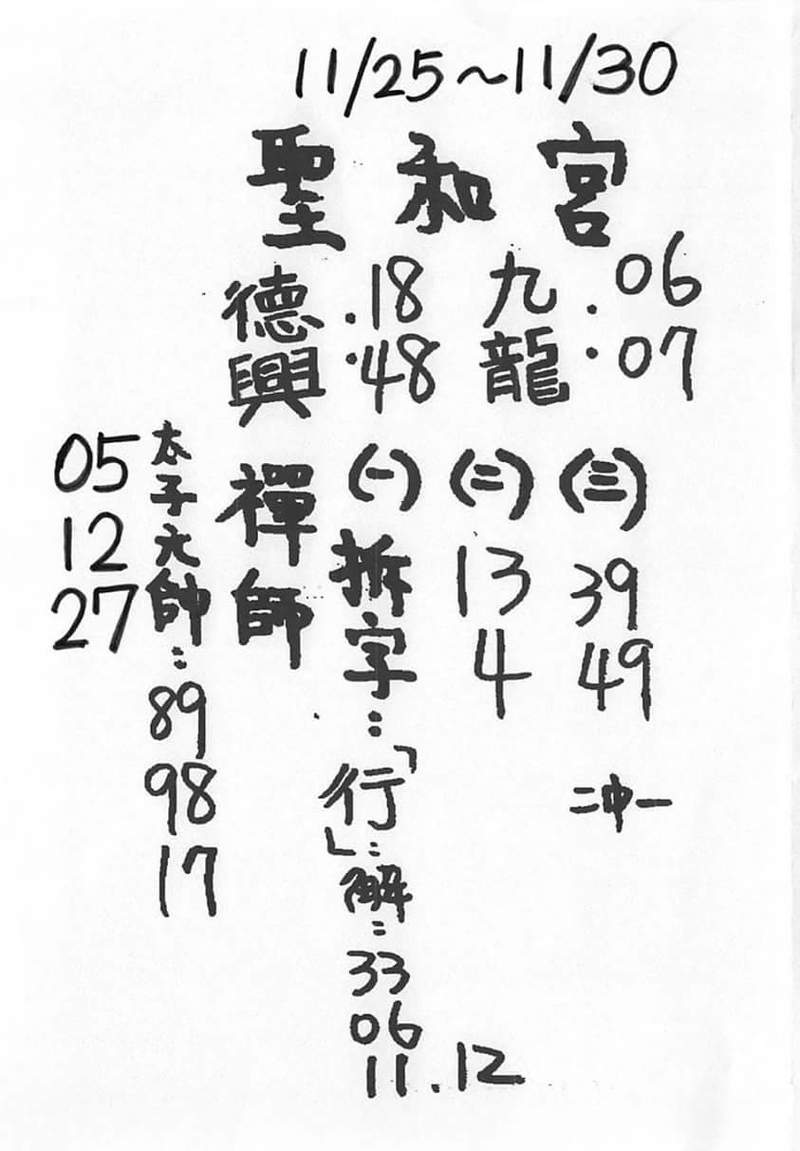 11/25~11/30
聖和宮
德興 .18 .48
九龍 .06 .07
禪師
(一)拆字:「行」:解:33 06 11.12
(二) 13 4
(三) 39 49
二中一
太子元帥:89 98 17
05 12 27